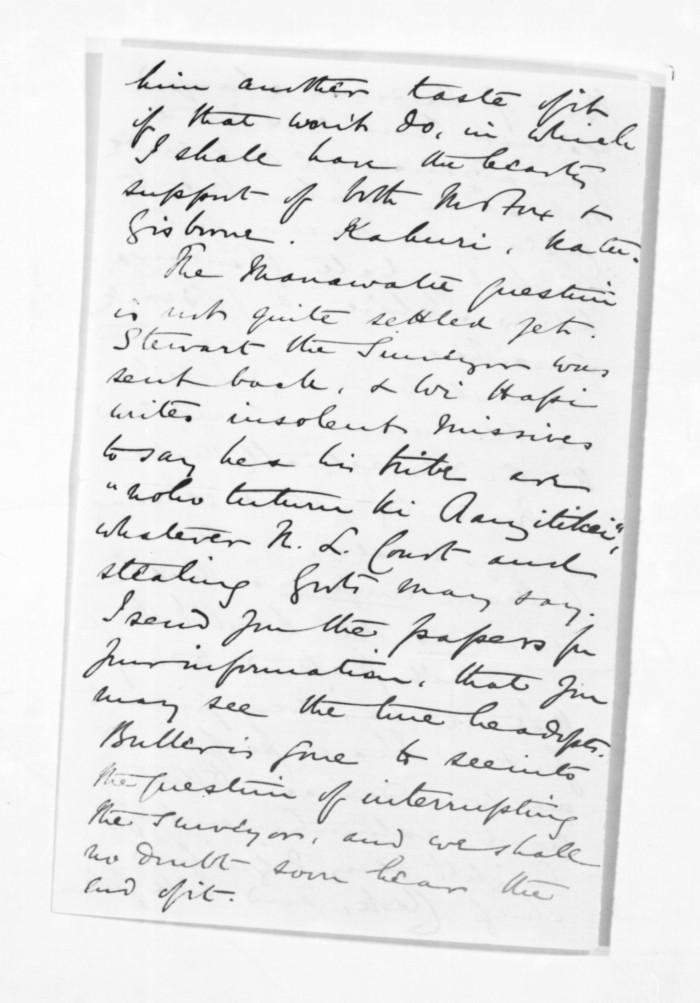 him another taste of it
if that won't do, in which
I shall have the hearty
support of both Mr Fox &
Gisborne. Kahuri, katu.
The Manawatu question
is not quite settled yet.
Stewart the Surveyor was
sent back, & Wi Hapi
writes insolent missives
to say he & his tribe are
"noho tuturu ki Rangitikei",
whatever N. L. Court and
stealing Govts may say.
I send you the papers for
your information, that you
may see the line he adopts.
Buller is gone to see into
the question of interrupting
the Surveyor, and we shall
no doubt soon hear the
end of it.